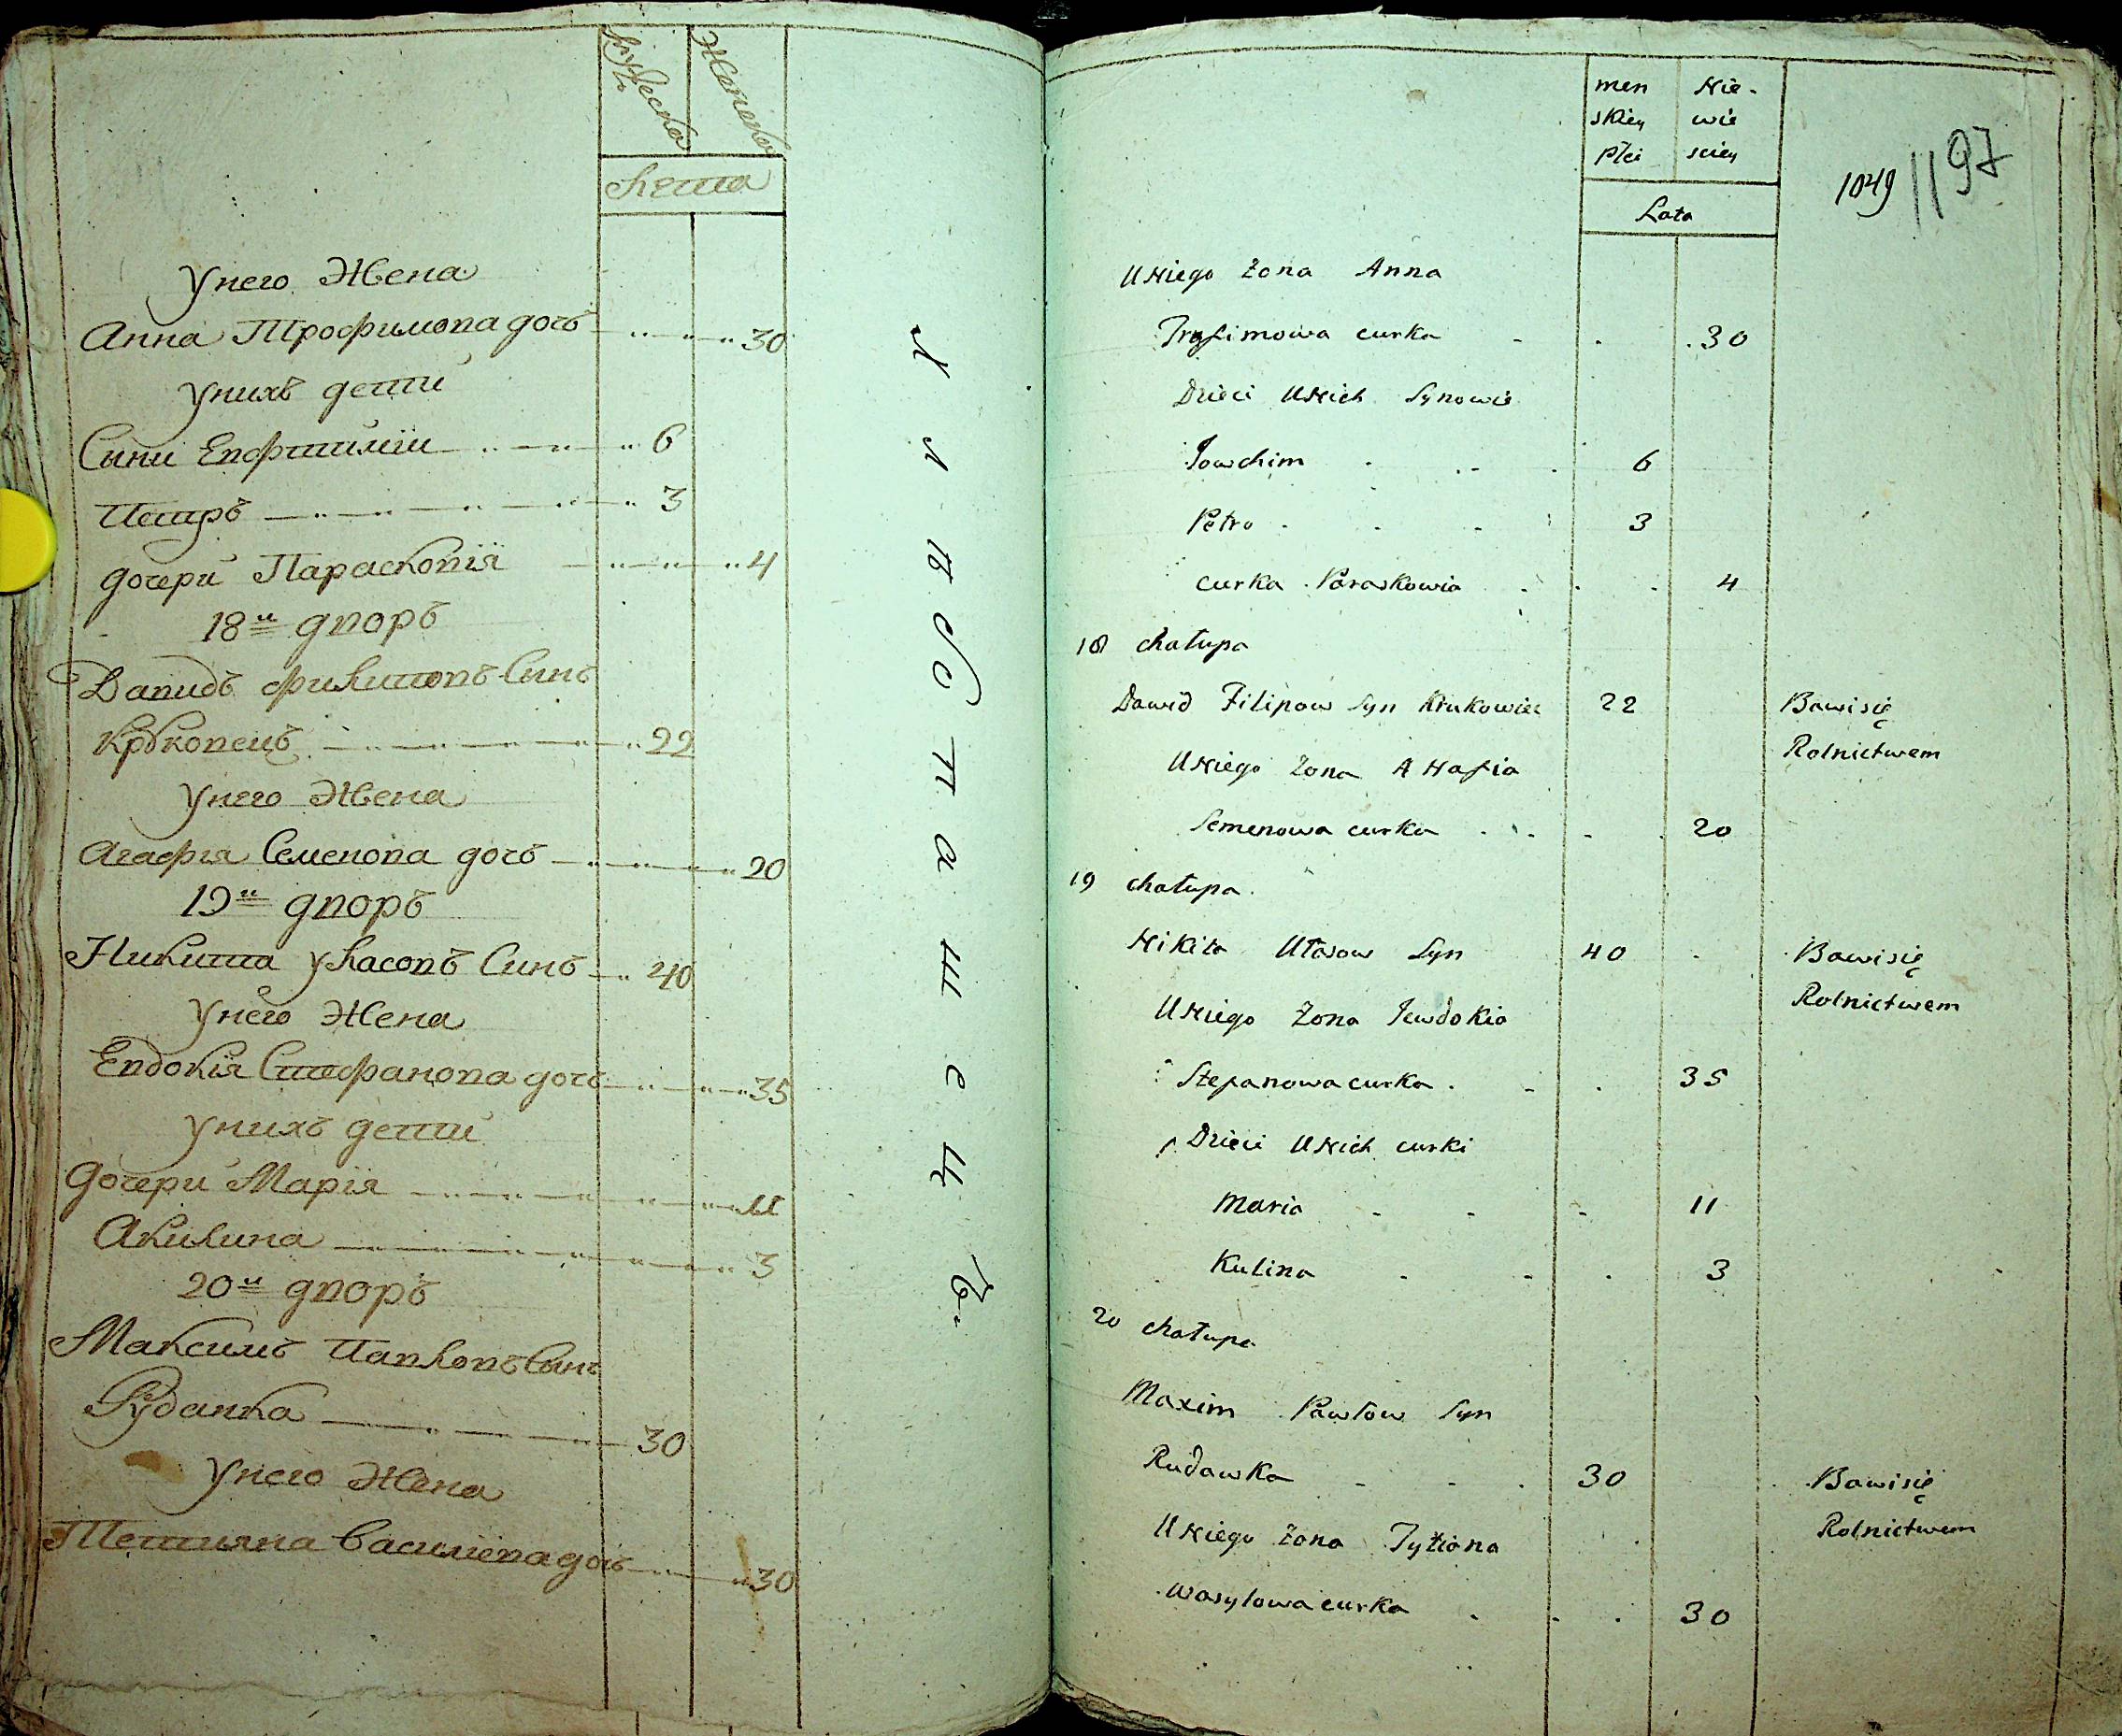 Мужеска Женска
Лета
У него Жена
Анна Трофимова дочь 30
У нихъ дети
Сыни Евфтимїи 6
Петръ 3
дочери Парасковїя 4
18й дворъ
Давидъ Филиповъ Синъ
Круковецъ 22
У него Жена
Агафия Семенова дочь 20
19й дворъ
Никита Уласовъ Синъ 40
У него Жена
Евдокїя Стефанова дочь 35
У нихъ дети
Дочери Марїя 11
Акилина 3
20й дворъ
Максимъ Павловъ Сынъ
Рудавка 30
У него Жена
Тетияна Василїева дочь 30
men Nie-
skiey wie
płci sciey
Lata
1049 1197
U Niego żona Anna
Trofimowa curka 30
Dzieci U Nich Synowie
Jowchim 6
Petro 3
curka Paraskowia 4
18 chałupa
Dawid Filipow Syn Krukowiec 22 Bawi się
Rolnictwem
U Niego żona AHafia
Semenowa curka 20
19 chałupa
Nikita Ułasow Syn 40 Bawi się
Rolnictwem
U Niego żona Jewdokia
Stefanowa curka 35
Dzieci U Nich curki
Maria 11
Kulina 3
20 chałupa
Maxim Pawłow Syn
Rudawka 30 Bawi się
Rolnictwem
U Niego żona Tytiana
Wasylowa curka 30